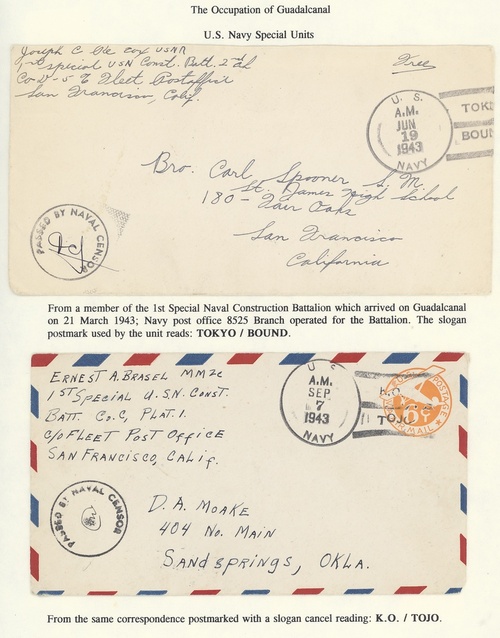 The Occupation of Guadalcanal
U.S. Navy Special Units
Joseph C. Cox USNR
1st special USN Const. Batt. 2nd
Co D-5 % Fleet Postoffice
San Francisco, Calif.
Free
U. S.
A.M.
JUN
19
1943
NAVY
TOK
BOUN
Bro. Carl Spooner S.M.
St. James High School
180 - Fair Oaks
San Francisco
California
PASSED BY NAVAL CENSOR
From a member of the 1st Special Naval Construction Battalion which arrived on Guadalcanal
on 21 March 1943; Navy post office 8525 Branch operated for the Battalion. The slogan
postmark used by the unit reads: TOKYO / BOUND.
ERNEST A. BRASEL MM2c
1ST SPECIAL U.S.N. CONST.
BATT. CO. C, PLAT. 1.
c/o FLEET POST OFFICE
SAN FRANCISCO, CALIF.
U. S.
A.M.
SEP
7
1943
NAVY
TOJO
POSTAGE
6¢
AIR MAIL
PASSED BY NAVAL CENSOR
D. A. MOAKE
404 No. MAIN
SANDSPRINGS, OKLA.
From the same correspondence postmarked with a slogan cancel reading: K.O. / TOJO.